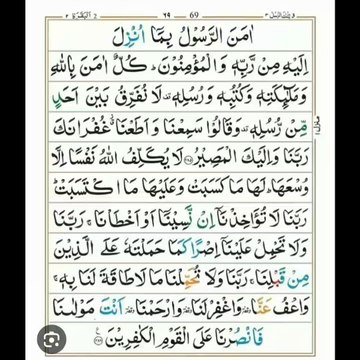 تِلْكَ الرُّسُلُ ٣ 69 ٦٩ 2 اَلْبَقَرَة ٢
اٰمَنَ الرَّسُوْلُ بِمَاۤ اُنْزِلَ
اِلَيْهِ مِنْ رَّبِّهٖ وَالْمُؤْمِنُوْنَ ؕ كُلٌّ اٰمَنَ بِاللّٰهِ
وَمَلٰٓئِكَتِهٖ وَكُتُبِهٖ وَرُسُلِهٖ لَا نُفَرِّقُ بَيْنَ اَحَدٍ
مِّنْ رُّسُلِهٖ وَقَالُوْا سَمِعْنَا وَاَطَعْنَا غُفْرَانَكَ
رَبَّنَا وَاِلَيْكَ الْمَصِيْرُ ﴿٢٨٥﴾ لَا يُكَلِّفُ اللّٰهُ نَفْسًا اِلَّا
وُسْعَهَا ؕ لَهَا مَا كَسَبَتْ وَعَلَيْهَا مَا اكْتَسَبَتْ ؕ
رَبَّنَا لَا تُؤَاخِذْنَاۤ اِنْ نَّسِيْنَاۤ اَوْ اَخْطَاْنَا ۚ رَبَّنَا
وَلَا تَحْمِلْ عَلَيْنَاۤ اِصْرًا كَمَا حَمَلْتَهٗ عَلَى الَّذِيْنَ
مِنْ قَبْلِنَا ۚ رَبَّنَا وَلَا تُحَمِّلْنَا مَا لَا طَاقَةَ لَنَا بِهٖ ۚ
وَاعْفُ عَنَّا ٝ وَاغْفِرْ لَنَا ٝ وَارْحَمْنَا ٝ اَنْتَ مَوْلٰىنَا
فَانْصُرْنَا عَلَى الْقَوْمِ الْكٰفِرِيْنَ ﴿٢٨٦﴾